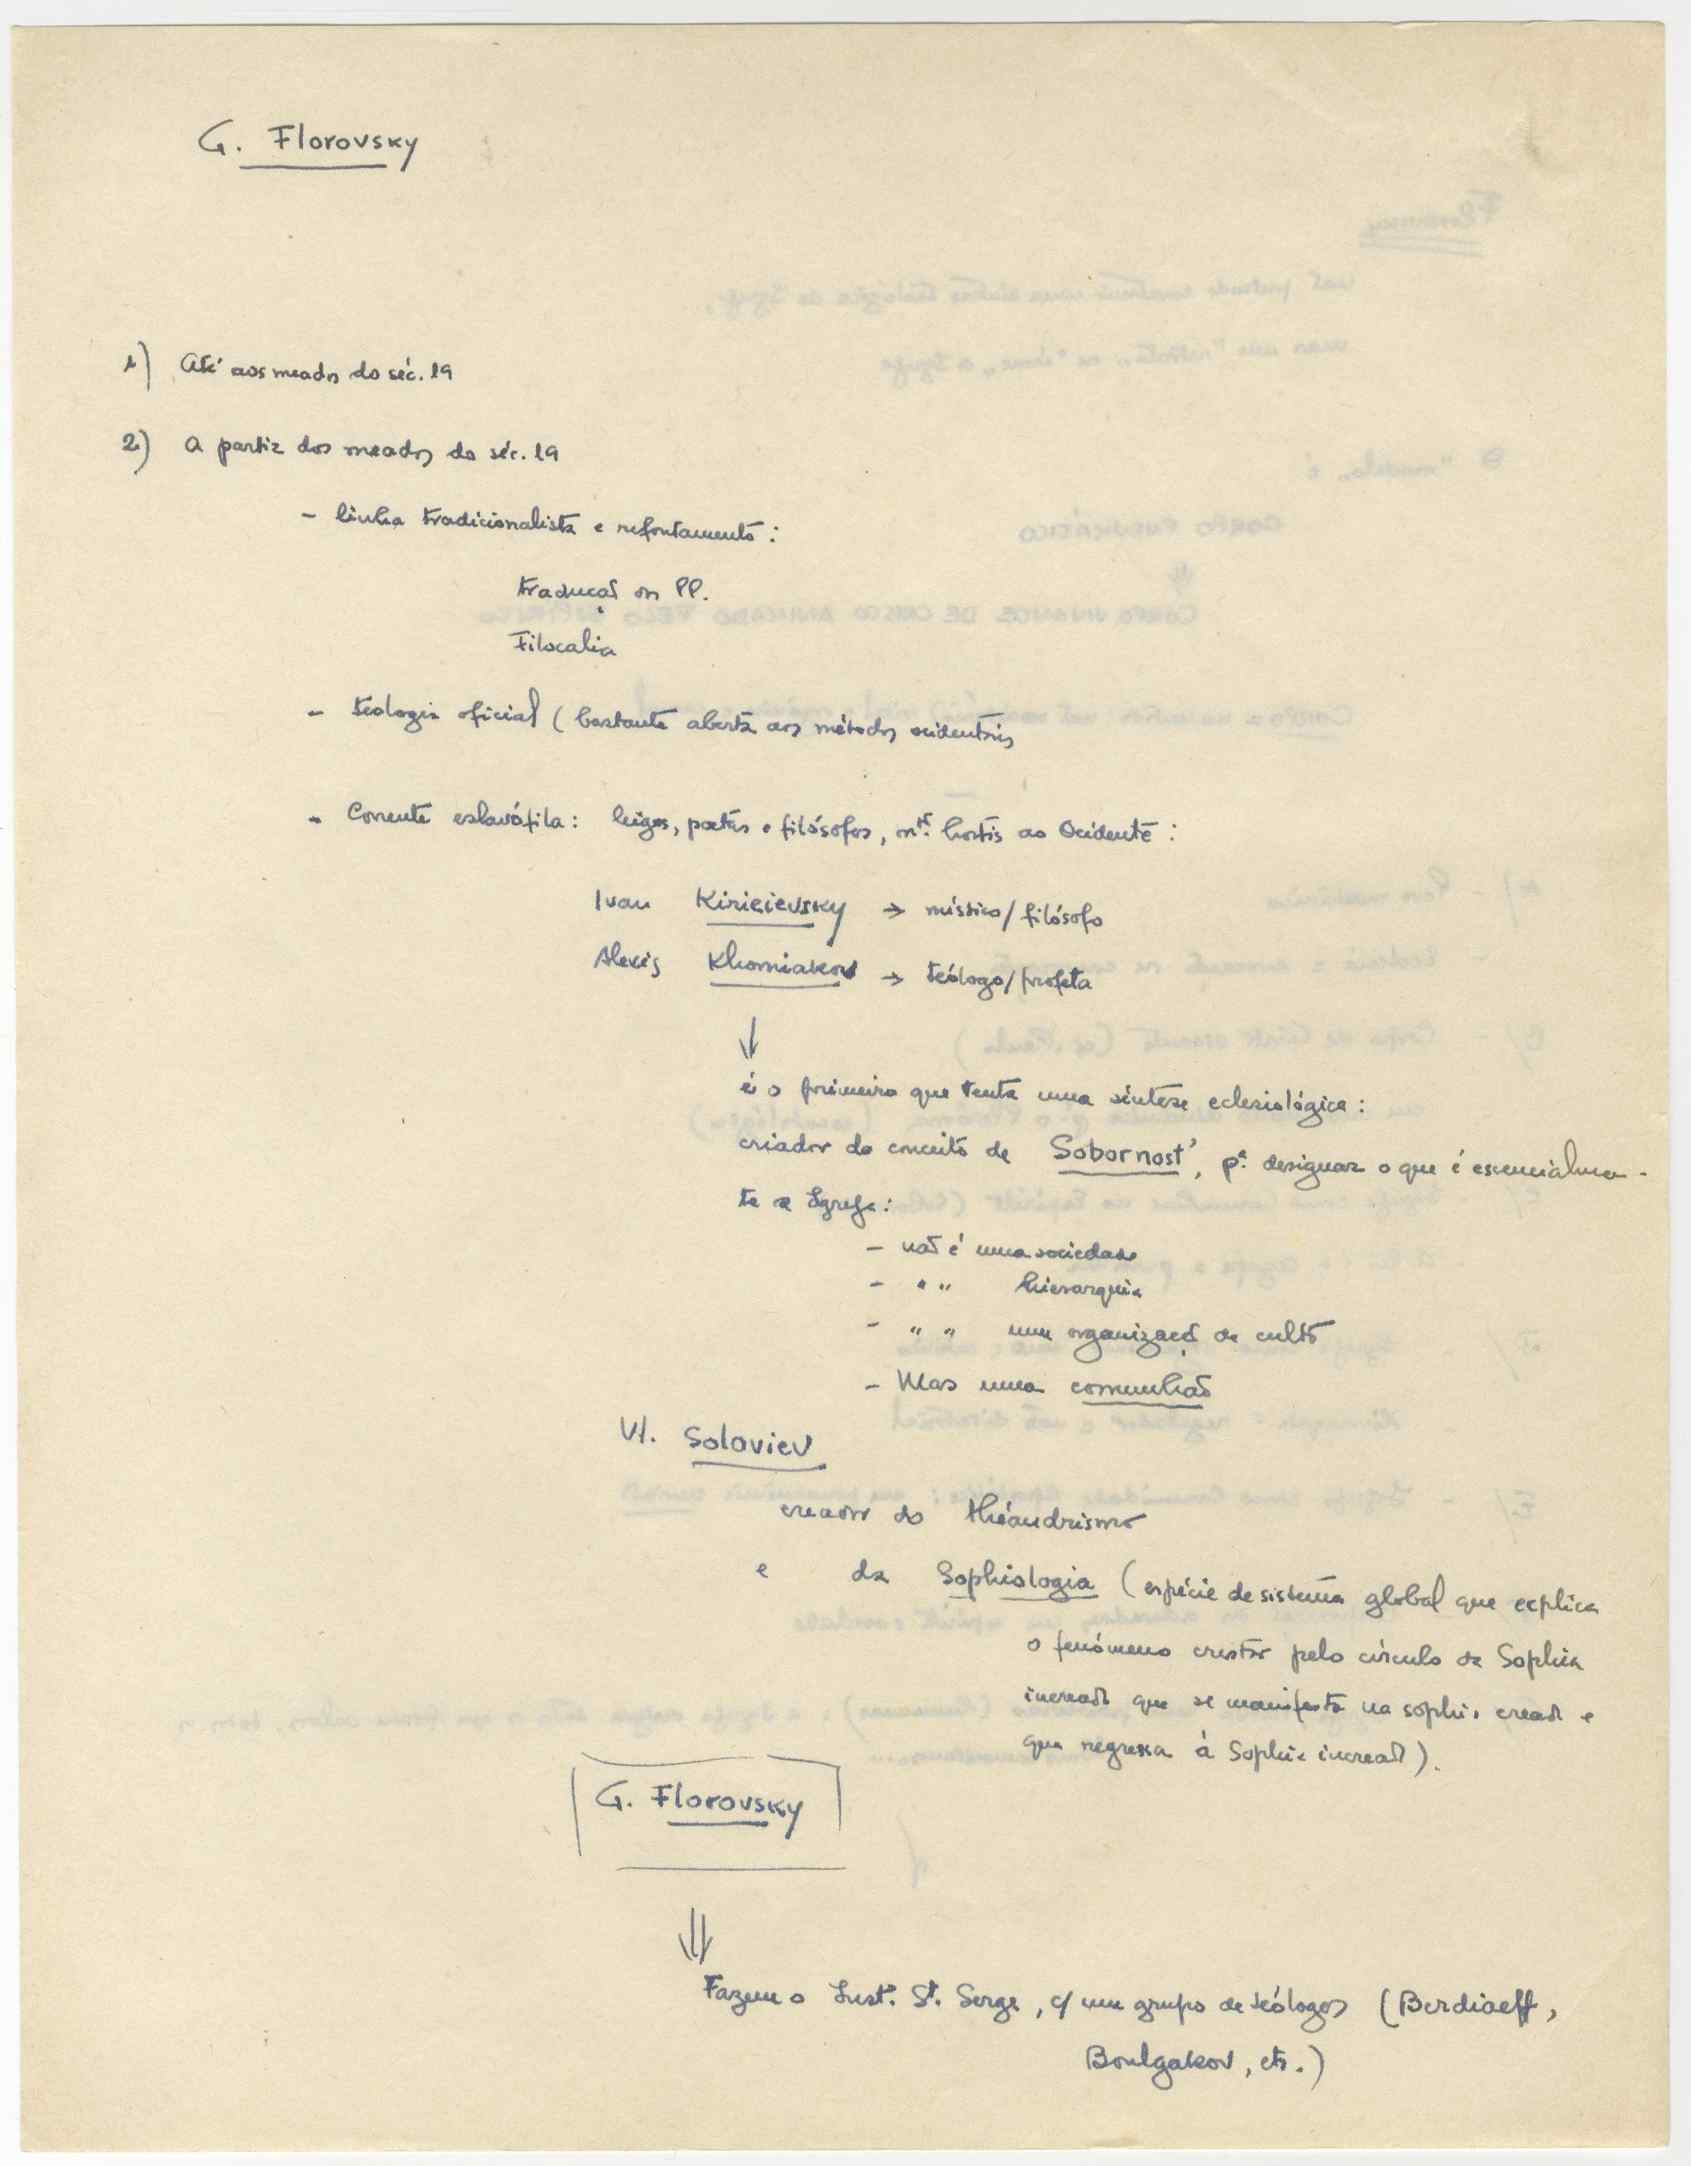 G. Florovsky
1) Até aos meados do séc. 19
2) A partir dos meados do séc. 19
- linha tradicionalista e refontamento:
tradução dos PP.
Filocalia
- teologia oficial (bastante aberta aos métodos ocidentais
- Corrente eslavófila: leigos, poetas e filósofos, mt. hostis ao Ocidente:
Ivan Kirieievsky → místico/filósofo
Alexis Khomiakov → teólogo/profeta
↓
é o primeiro que tenta uma síntese eclesiológica:
criador do conceito de Sobornost', pª designar o que é essencialmen-
te a Igreja:
- não é uma sociedade
- " " hierarquia
- " " uma organização de culto
- Mas uma comunhão
Vl. Soloviev
creador do théandrismo
e da Sophiologia (espécie de sistema global que explica
o fenómeno cristão pelo círculo da Sophia
increada que se manifesta na sophia creada e
que regressa à Sophia increada).
G. Florovsky
⇓
Fazem o Inst. St. Serge, c/ um grupo de teólogos (Berdiaeff,
Boulgakov, etc.)